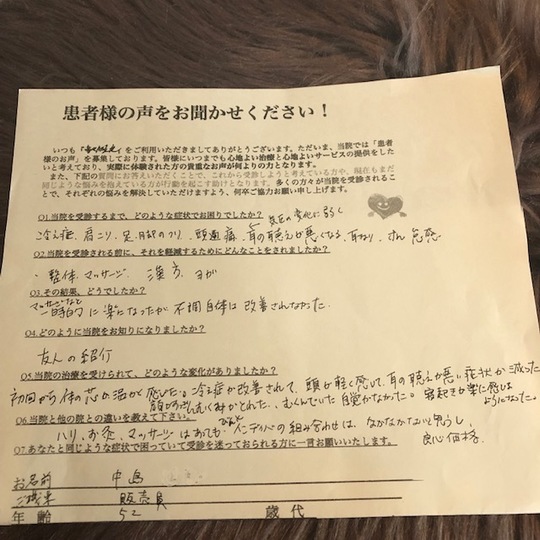 患者様の声をお聞かせください！
いつも「　」をご利用いただきましてありがとうございます。ただいま、当院では「患者
様のお声」を募集しております。皆様にいつまでも心地よい治療と心地よいサービスの提供をした
いと考えており、実際に体験された方の貴重なお声が何よりの力となります。
また、下記の質問にお答えいただくことで、これから受診しようと考えている方や、現在もまだ
同じような悩みを抱えている方が行動を起こす助けとなります。多くの方々が当院を受診されるこ
とで、それぞれの悩みを解決していただけますよう、何卒ご協力お願い申し上げます。
Q1.当院を受診するまで、どのような症状でお困りでしたか？
気圧の変化に弱く
冷え症、肩こり、足、目、頭の、頭痛、耳の聴えが悪くなる、耳なり、
Q2.当院を受診される前に、それを軽減するためにどんなことをされましたか？
・整体、マッサージ、漢方、ヨガ
Q3.その結果、どうでしたか？
マッサージなど
一時的に楽になったが不調自体は改善されなかった。
Q4.どのように当院をお知りになりましたか？
友人の紹介
Q5.当院の治療を受けられて、どのような変化がありましたか？
初回から体の芯から温が感じた。冷え症が改善されて、頭が軽く感じて、耳の聴えが悪い症状が減った
顔がむくみがとれた、むくんでいた自覚がなかった。寝起きが楽に感じる
ようになった。
Q6.当院と他の院との違いを教えて下さい。
ハリ、お灸、マッサージはあっても インディバの組み合わせは、なかなかないと思うし、
良心価格。
Q7.あなたと同じような症状で困っていて受診を迷っておられる方に一言お願いいたします。
お名前　中島
ご職業　販売員
年　齢　52　歳代